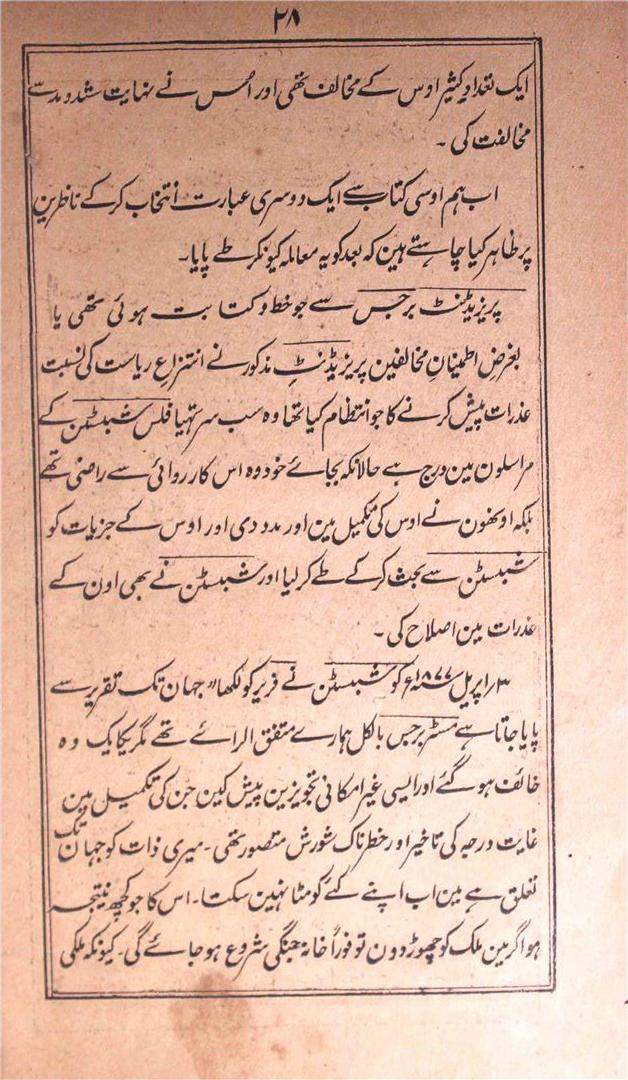 ۲۸
ایک تعداد کثیر اوس کے مخالف تھی اور اُس نے نہایت شد و مد سے
مخالفت کی ۔
اب ہم اوسی کتاب سے ایک دوسری عبارت انتخاب کر کے ناظرین
پر ظاہر کیا چاہتے ہین کہ بعد کو یہ معاملہ کیونکر طے پایا۔
پریزیڈنٹ برجس سے جو خط و کتابت ہوئی تھی یا
بغرضِ اطمینانِ مخالفین پریزیڈنٹِ مذکور نے انتزاعِ ریاست کی نسبت
عذرات پیش کرنے کا جو انتظام کیا تھا وہ سب سر تھیا فلس شبسٹن کے
مراسلون مین درج ہے حالانکہ بجائے خود وہ اس کارروائی سے راضی تھے
بلکہ اونھون نے اوس کی تکمیل مین اور مدد دی اور اوس کے جزیات کو
شبسٹن سے بحث کر کے طے کر لیا اور شبسٹن نے بھی اون کے
عذرات مین اصلاح کی ۔
۳ اپریل ۱۸۷۷ء کو شبسٹن نے فریر کو لکھا "جہان تک تقریر سے
پایا جاتا ہے مسٹر برجس بالکل ہمارے متفق الرائے تھے مگر یکایک وہ
خائف ہو گئے اور ایسی غیر امکانی تجویزین پیش کین جن کی تکمیل مین
غایت درجہ کی تاخیر اور خطرناک شورش متصور تھی ۔ میری ذات کو جہان تک
تعلق ہے مین اب اپنے کئے کو مٹا نہین سکتا ۔ اس کا جو کچھ نتیجہ
ہو اگر مین ملک کو چھوڑ دون تو فوراً خانہ جنگی شروع ہو جائے گی ۔ کیونکہ ملکی